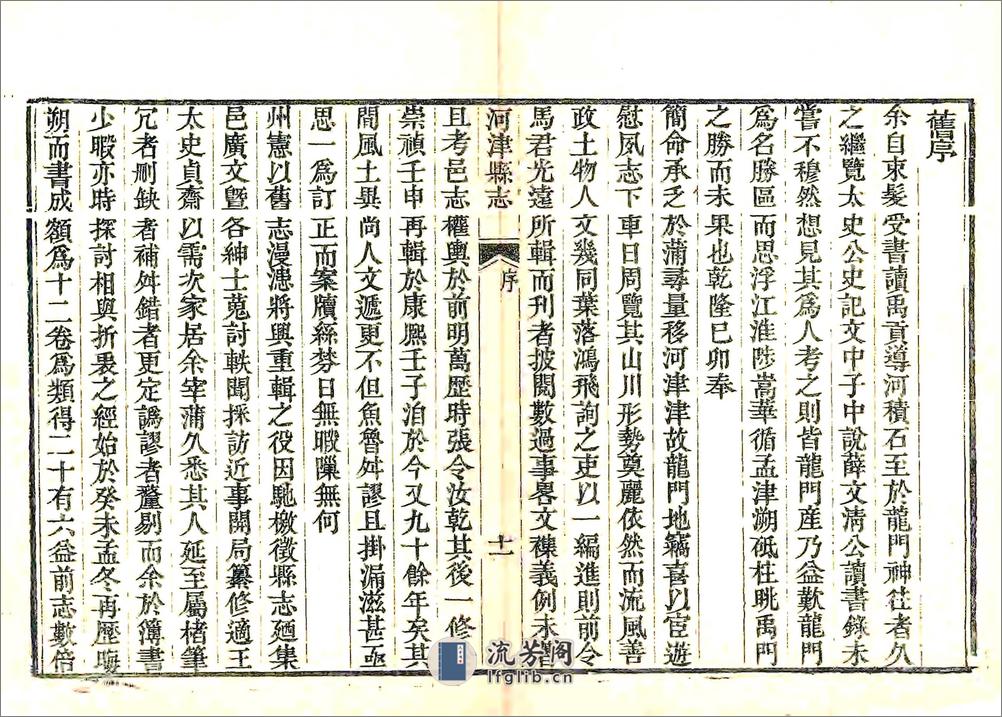 舊序
余自束髮受書讀禹貢導河積石至於龍門神往者久
之繼覽太史公史記文中子中說薛文清公讀書錄未
嘗不穆然想見其為人考之則皆龍門產乃益歎龍門
為名勝區而思浮江淮陟嵩華循孟津溯砥柱眺禹門
之勝而未果也乾隆巳卯奉
簡命承乏於蒲尋量移河津津故龍門地竊喜以宦遊
慰夙志下車日周覽其山川形勢奠麗依然而流風善
政土物人文幾同葉落鴻飛詢之吏以一編進則前令
馬君光遠所輯而刊者披閱數過事畧文穢義例未習
河津縣志
序
十一
且考邑志權輿於前明萬歷時張令汝乾其後一修於
崇禎壬申再輯於康熙壬子洎於今又九十餘年矣其
間風土異尚人文遞更不但魚魯舛謬且掛漏滋甚亟
思一為訂正而案牘絲棼日無暇隙無何
州憲以舊志漫漶將興重輯之役因馳檄徵縣志廼集
邑廣文暨各紳士蒐討軼聞採訪近事開局纂修適王
太史貞齋以需次家居余宰蒲久悉其人延至屬楮筆
冗者刪缺者補舛錯者更定譌謬者釐剔而余於簿書
少暇亦時探討相與折衷之經始於癸未孟冬再歷晦
朔而書成額為十二卷為類得二十有六益前志數倍
流芳阁
lfglib.cn